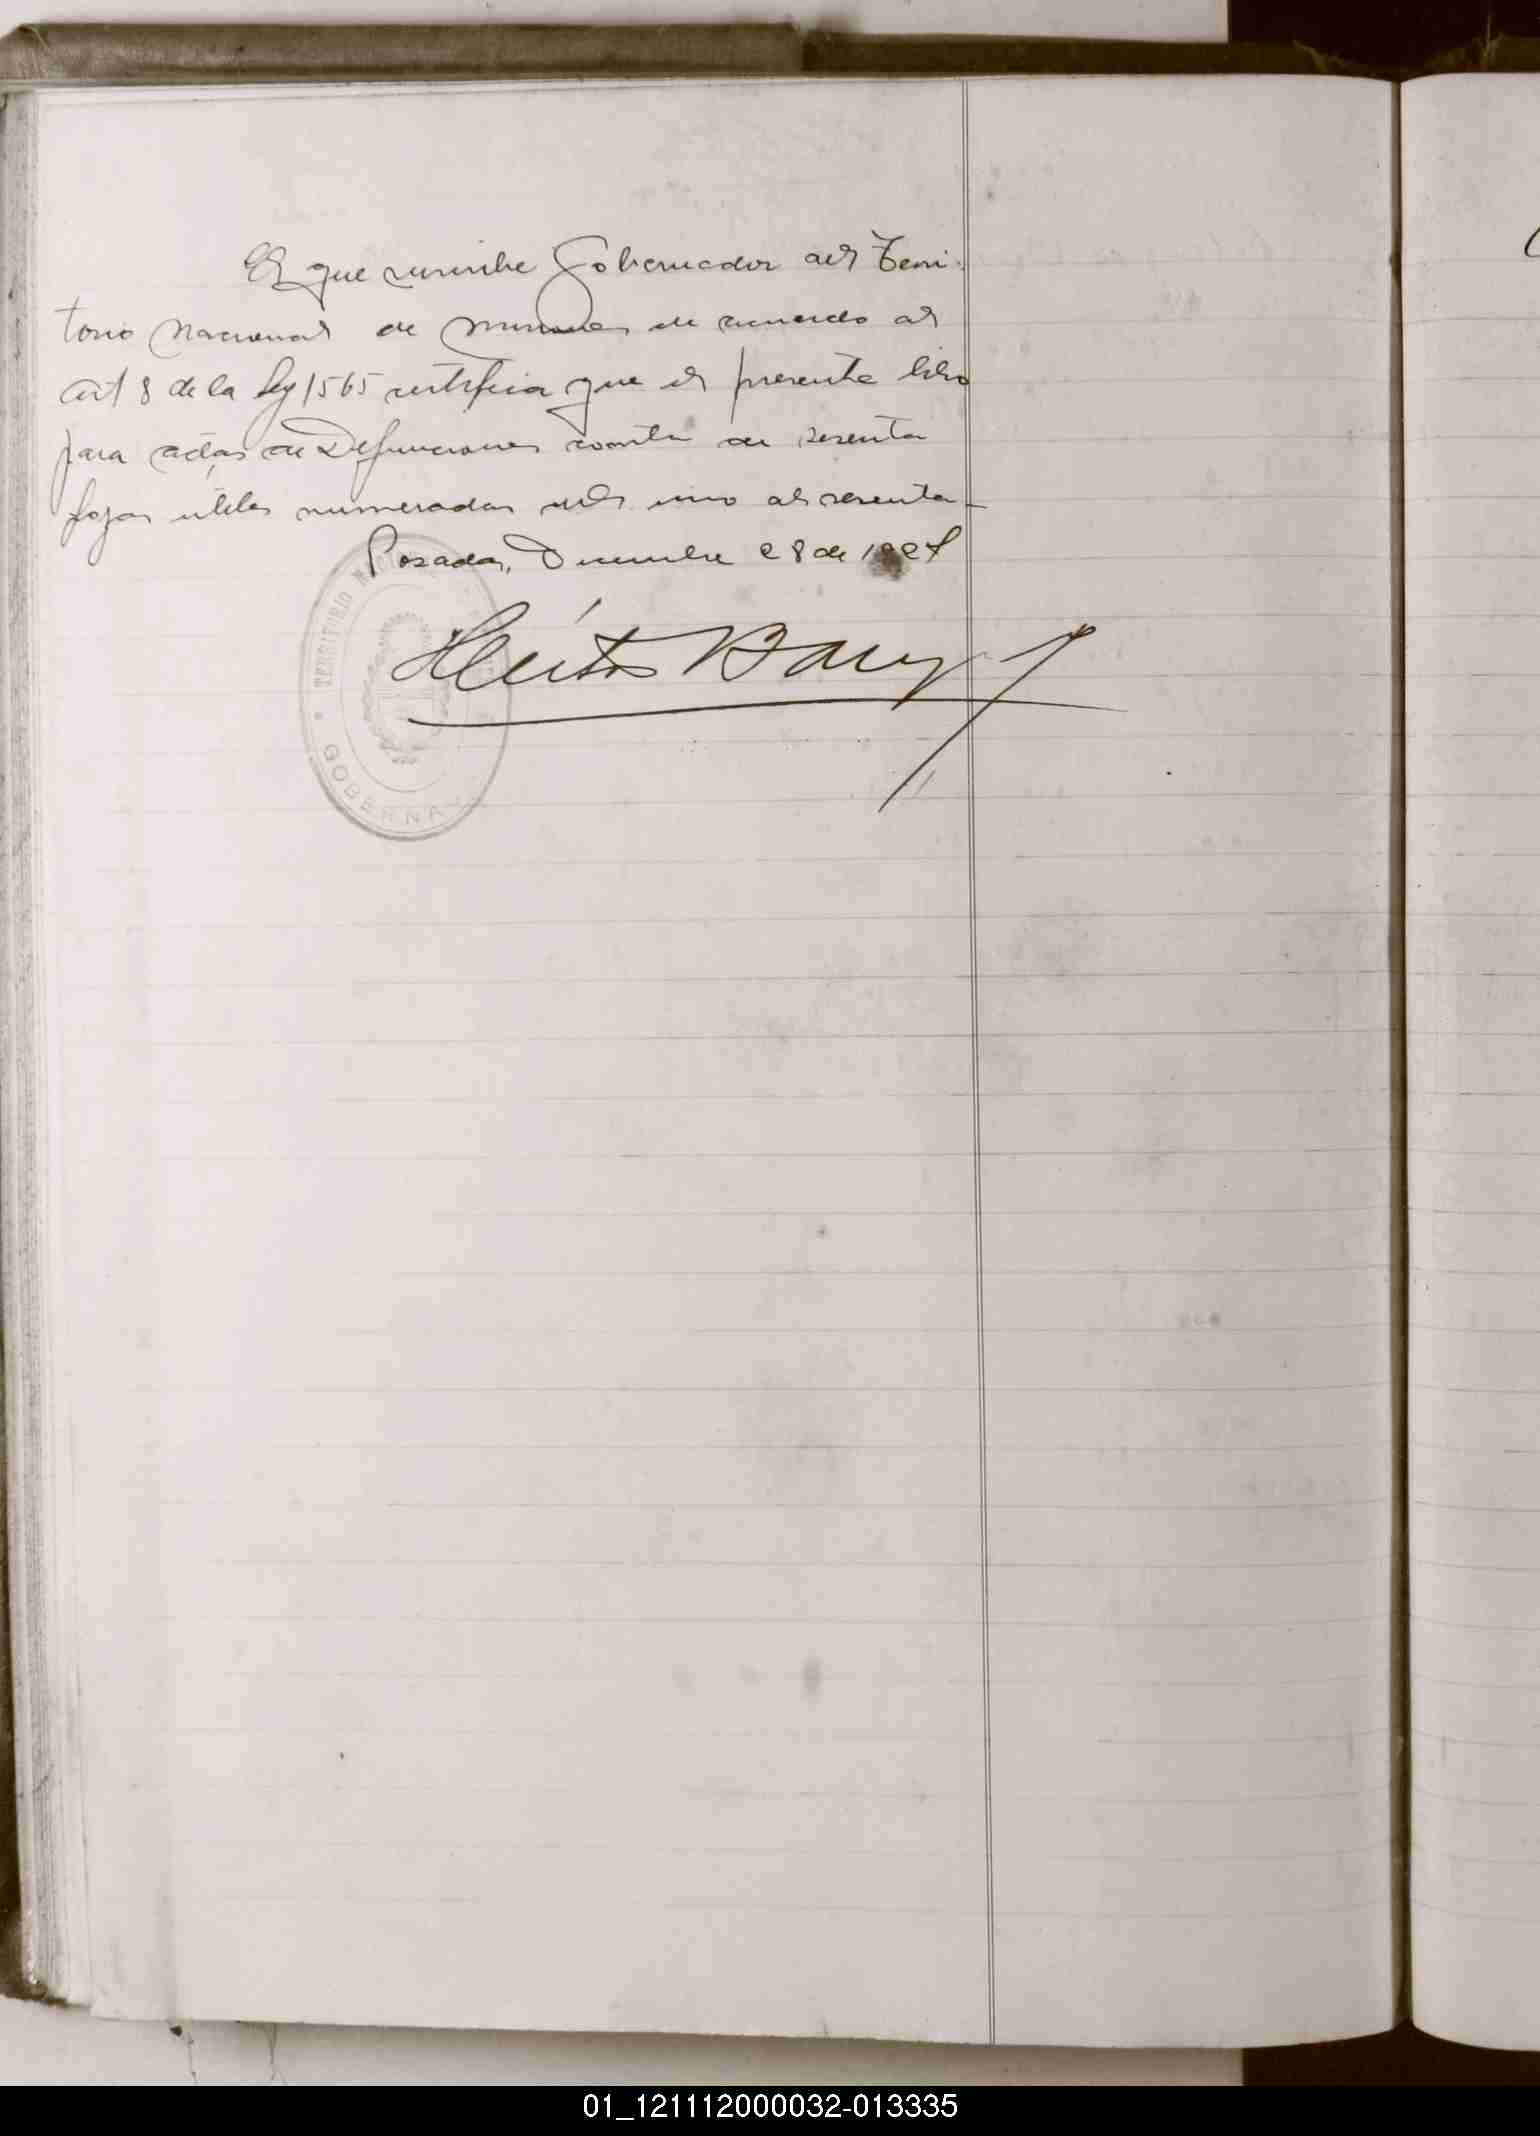 El que suscribe Gobernador del Terri-
torio Nacional de Misiones de acuerdo al
art 8 de la ley 1565 certifica que el presente libro
para actas de Defunciones consta de sesenta
fojas utiles numeradas del uno al sesenta
Posadas, Diciembre 28 de 192
Héctor Barreyro
TERRITORIO N
GOBERNA
01_121112000032-013335